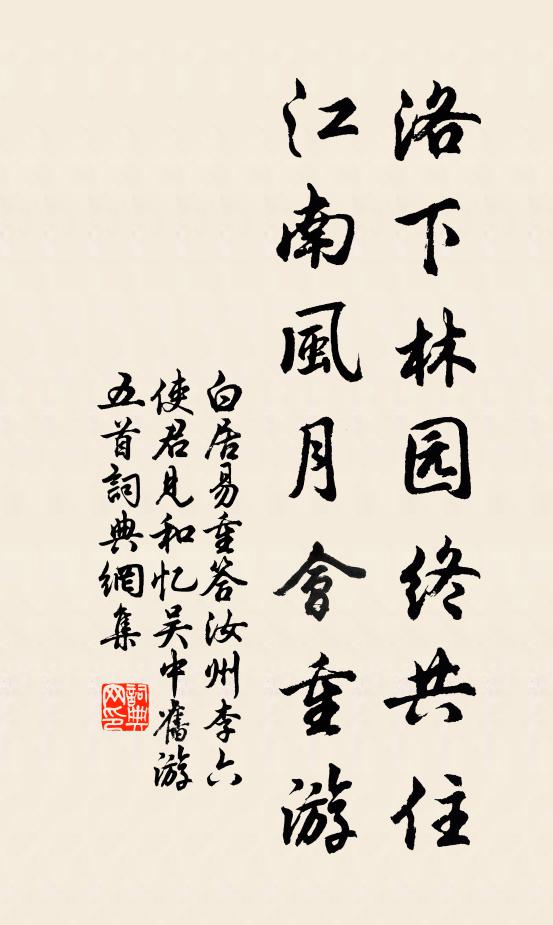 洛下林园终共住
江南風月會重游
白居易重答汝州李六
使君見和忆吴中舊游
五首詞典網集
詞典网印